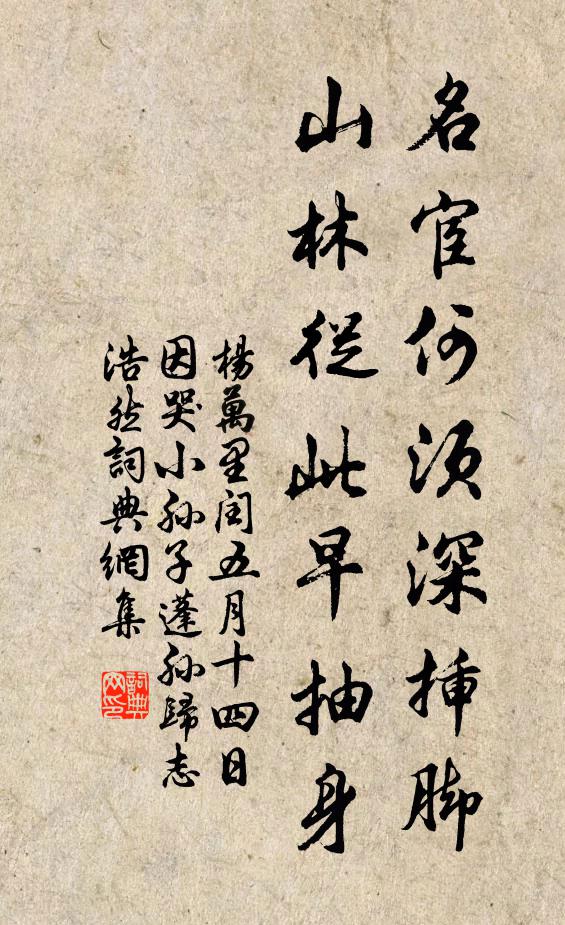 名宦何須深插脚
山林從此早抽身
楊萬里閏五月十四日
因哭小孫子蓬孫歸志
浩然詞典網集
詞典
网印